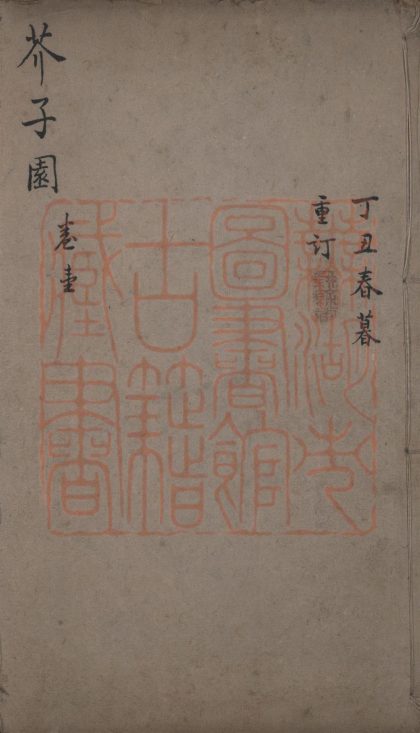 丁丑春暮
重订
芥子園
卷壹
蕪湖市
圖書館
古籍
藏書